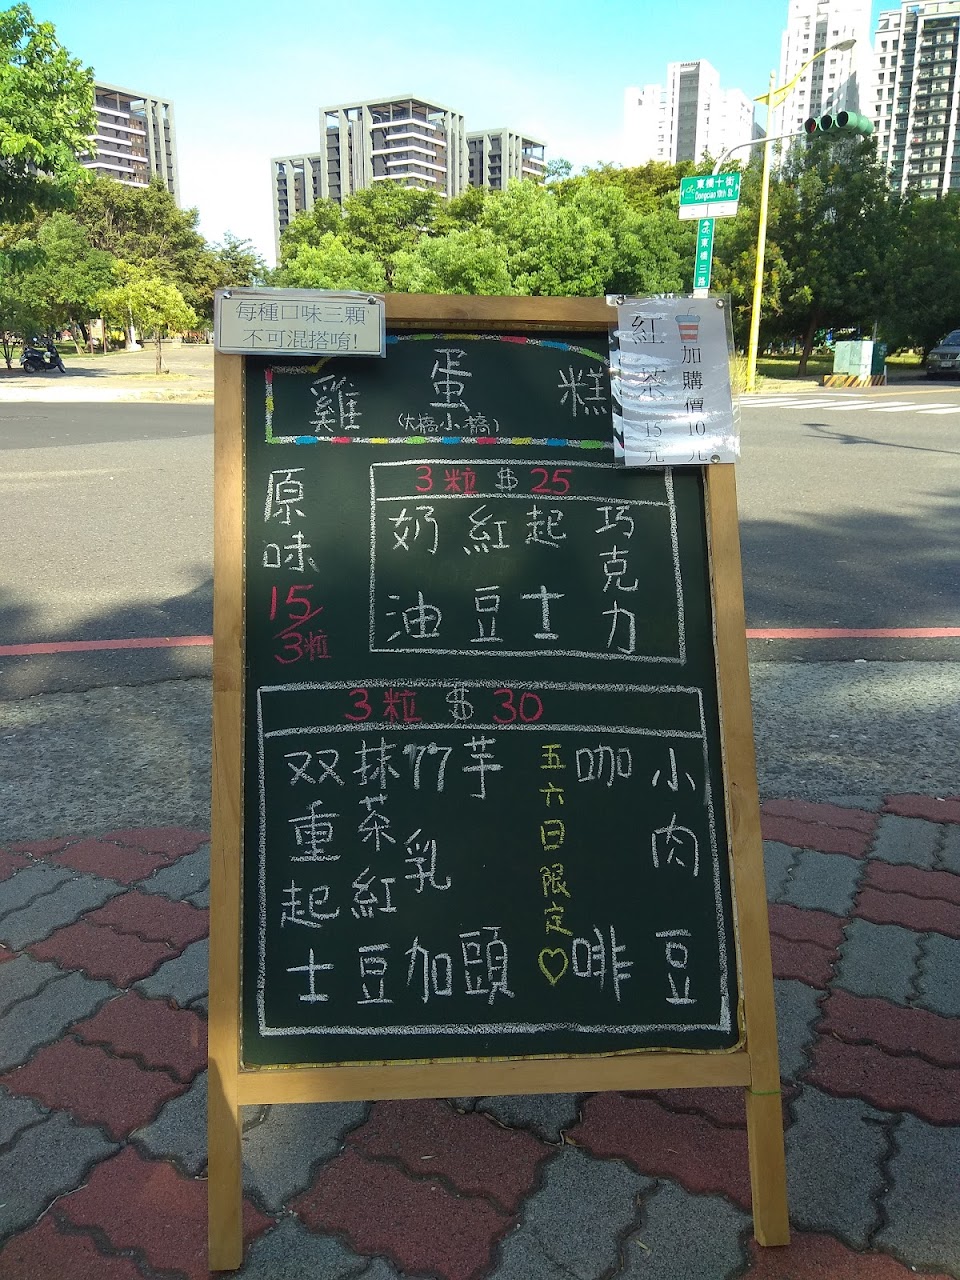 東橋十街
Dongciao 10th St.
東橋三路
每種口味三顆
不可混搭唷!
雞蛋糕
(大橋小橋)
紅茶15元
加購價10元
原味
15/3粒
3粒 $ 25
奶油
紅豆
起士
巧克力
3粒 $ 30
双重起士
抹茶紅豆
ㄋㄋ乳加
芋頭
五六日限定♡
咖啡
小肉豆